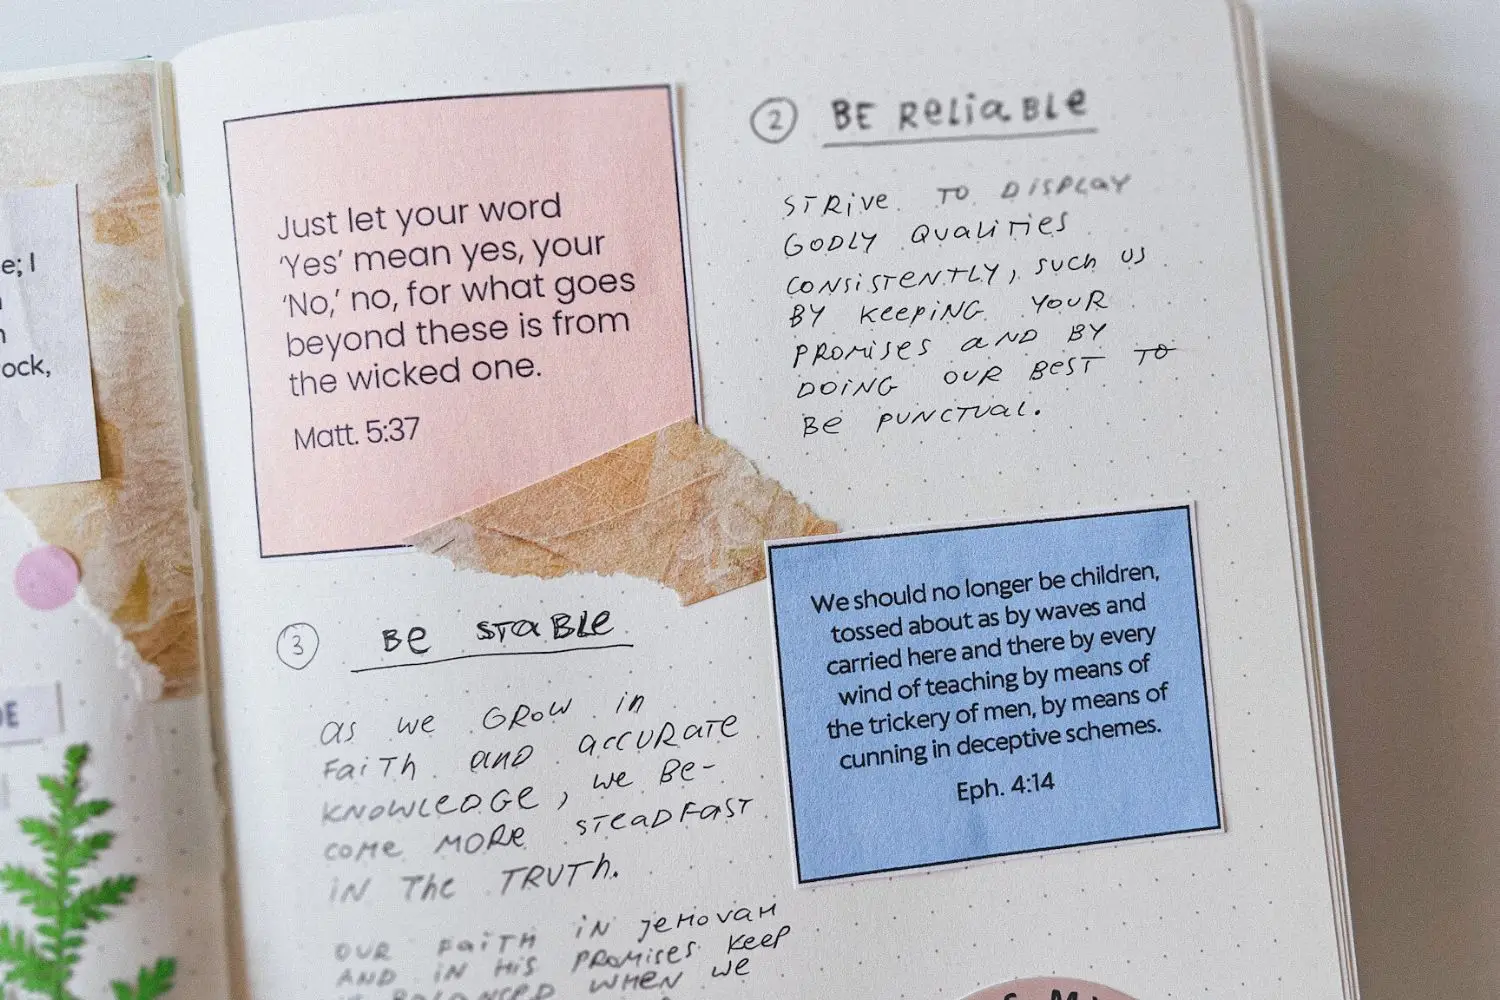 e; I
ock,
DE
Just let your word
'Yes' mean yes, your
'No,' no, for what goes
beyond these is from
the wicked one.
Matt. 5:37
2 BE ReLiaBLe
STRive TO DISPLAY
GODLY QUaLiTies
CONSISTENTLY, such us
BY KeepiNG YOUR
PROMises aND BY
DOiNG OUR BEST TO
Be PUNCTUaL.
3 Be STaBLe
as we GROW in
FaiTh aND aCCURaTe
KNOWLeDGe, we Be-
COMe MORe STeaDFaST
iN The TRUTh.
OUR FaiTH iN JeHOVaH
AND iN HiS PROMiSeS Keep
WHeN We
We should no longer be children,
tossed about as by waves and
carried here and there by every
wind of teaching by means of
the trickery of men, by means of
cunning in deceptive schemes.
Eph. 4:14